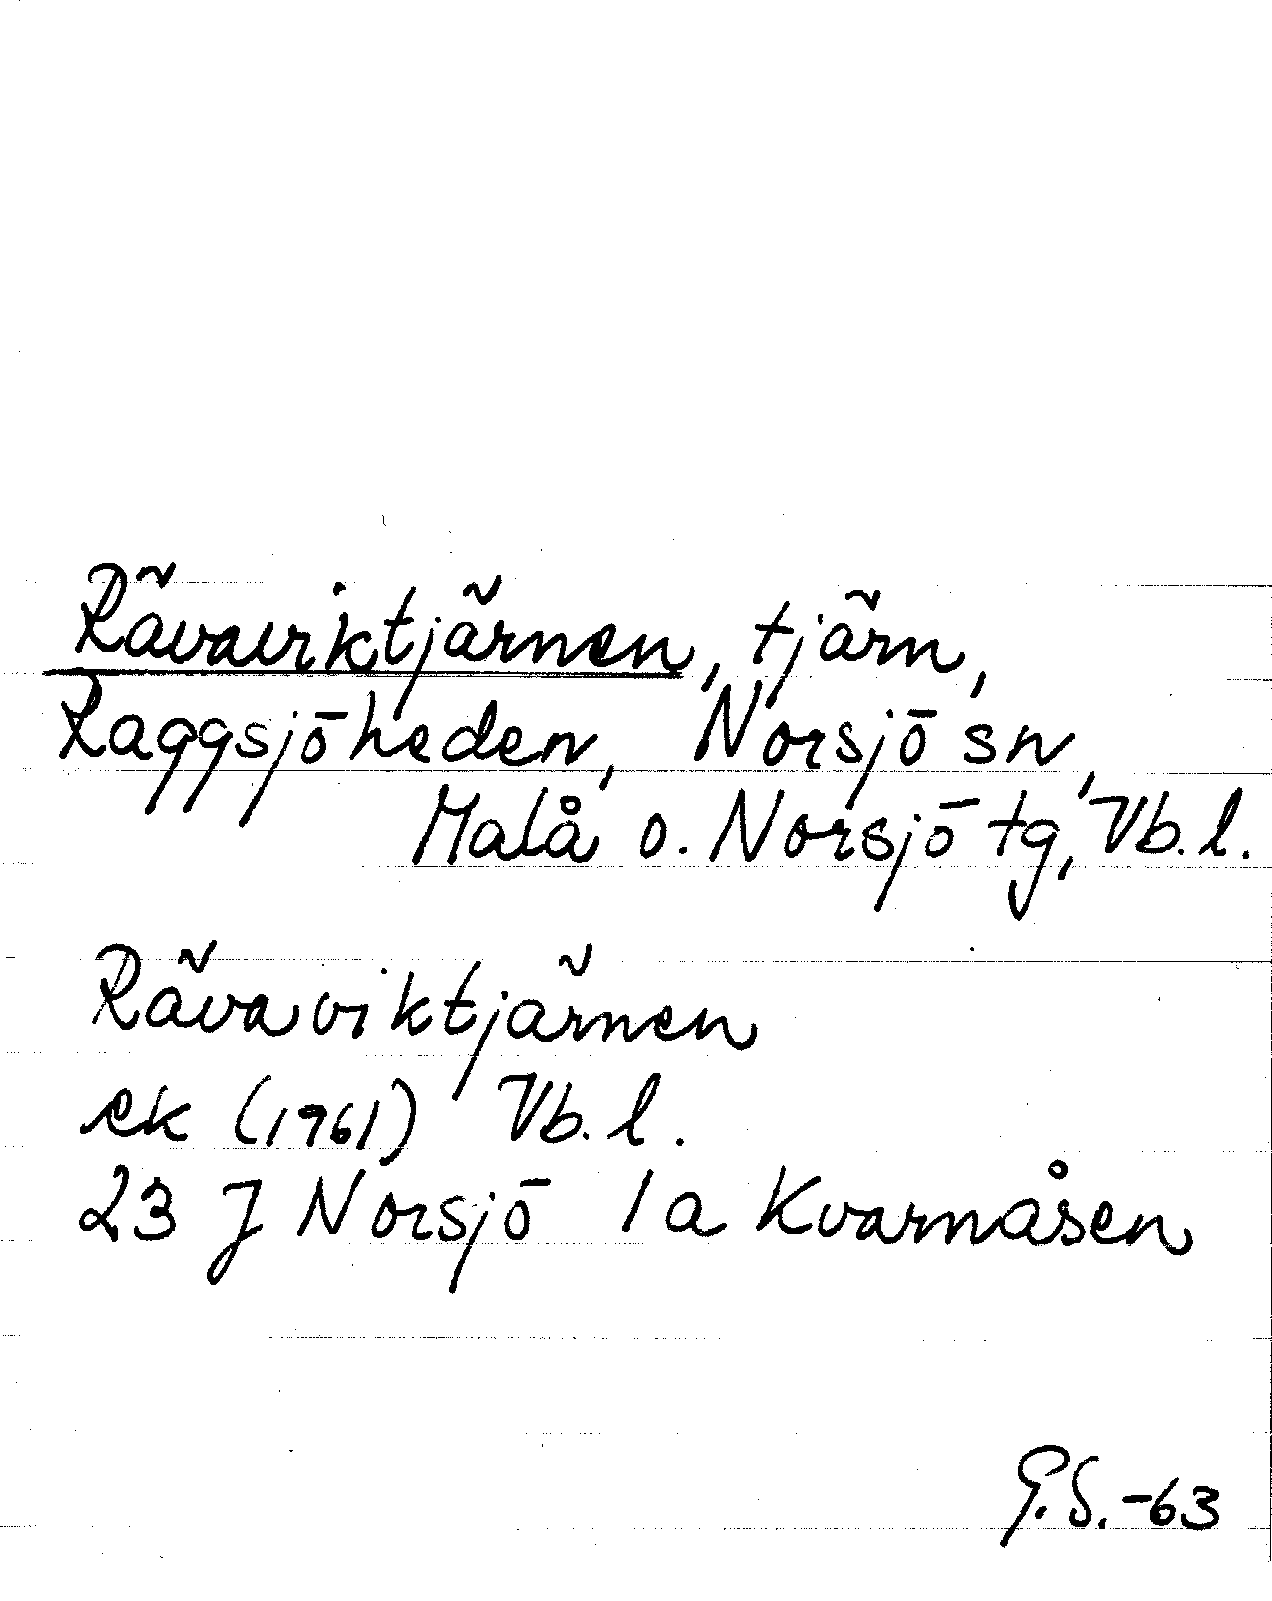 Rävaviktjärnen, tjärn,
Raggsjöheden, Norsjö sn,
Malå o. Norsjö tg, Vb. l.
Rävaviktjärnen
ek (1961) Vb. l.
23 J Norsjö 1a Kvarnåsen
G.S. -63